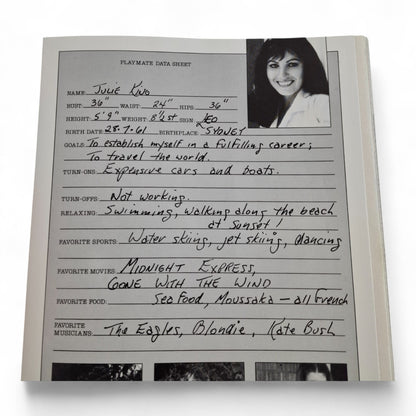 PLAYMATE DATA SHEET
NAME: JULIE KING
BUST: 36" WAIST: 24" HIPS: 36"
HEIGHT: 5'9" WEIGHT: 8½st SIGN: LEO
BIRTH DATE: 28.7.61 BIRTHPLACE: SYDNEY
GOALS: To establish myself in a fulfilling career;
To travel the world.
TURN-ONS: Expensive cars and boats.
TURN-OFFS: Not working.
RELAXING: Swimming, walking along the beach
at Sunset!
FAVORITE SPORTS: Water skiing, jet skiing, dancing
FAVORITE MOVIES: MIDNIGHT EXPRESS,
GONE WITH THE WIND
FAVORITE FOOD: Sea Food, Moussaka - all French
FAVORITE
MUSICIANS: The Eagles, Blondie, Kate Bush